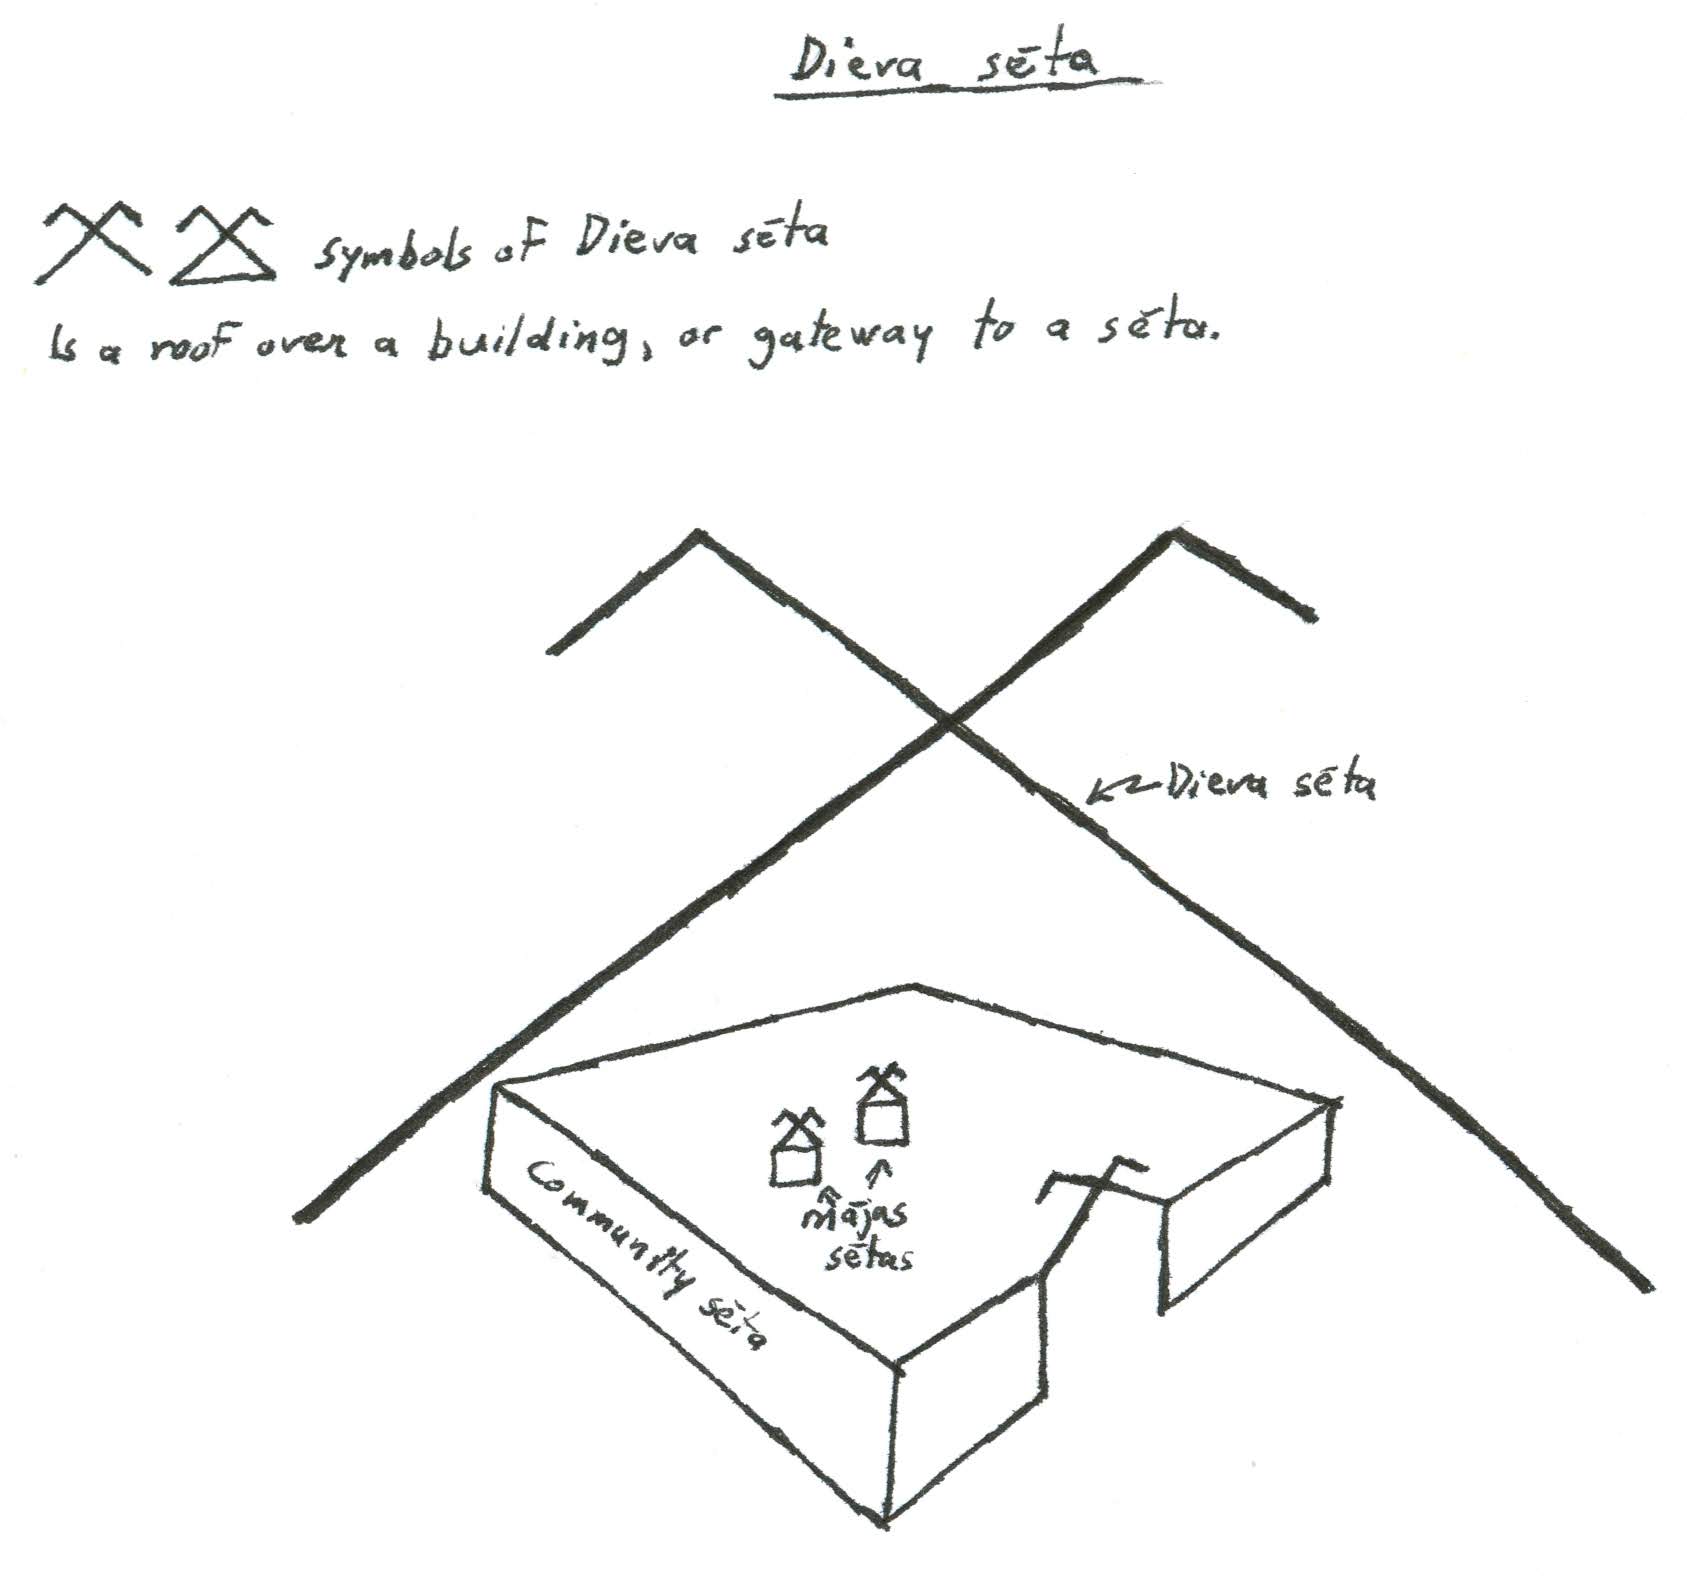 Dieva sēta
symbols of Dieva sēta
Is a roof over a building, or gateway to a sēta.
Dieva sēta
mājas
sētas
Community sēta